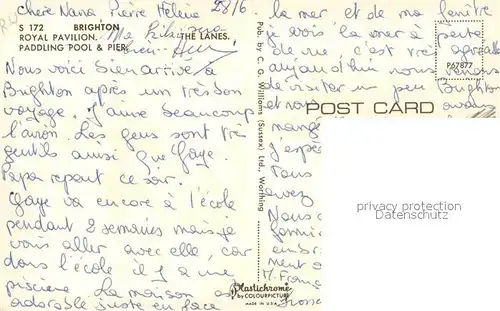 Chère Nana Pierre Hélène 28/6
S 172 BRIGHTON
ROYAL PAVILION. THE LANES.
PADDLING POOL & PIER.
Nous voici bien arrivé à
Brighton après un très bon
voyage. J'aime beaucoup
l'avion. Les gens sont très
gentils ainsi que Gaye.
Papa repart ce soir.
Gaye va encore à l'école
pendant 2 semaines mais je
vais aller avec elle, car
dans l'école il y a une
piscine. La maison est
adorable juste en face
Pub. by C. G. Williams (Sussex) Ltd., Worthing
Plastichrome
by COLOURPICTURE
MADE IN U.S.A.
la mer et de ma fenêtre
je vois la mer à perte
de vue c'est très agréable
aujourd'hui nous venons
de visiter un peu Brighton
et nous avons
P67877
POST CARD
mangé
J'espère
vous
avez
Nous
M. Franç
protection watermark
Datenschutz